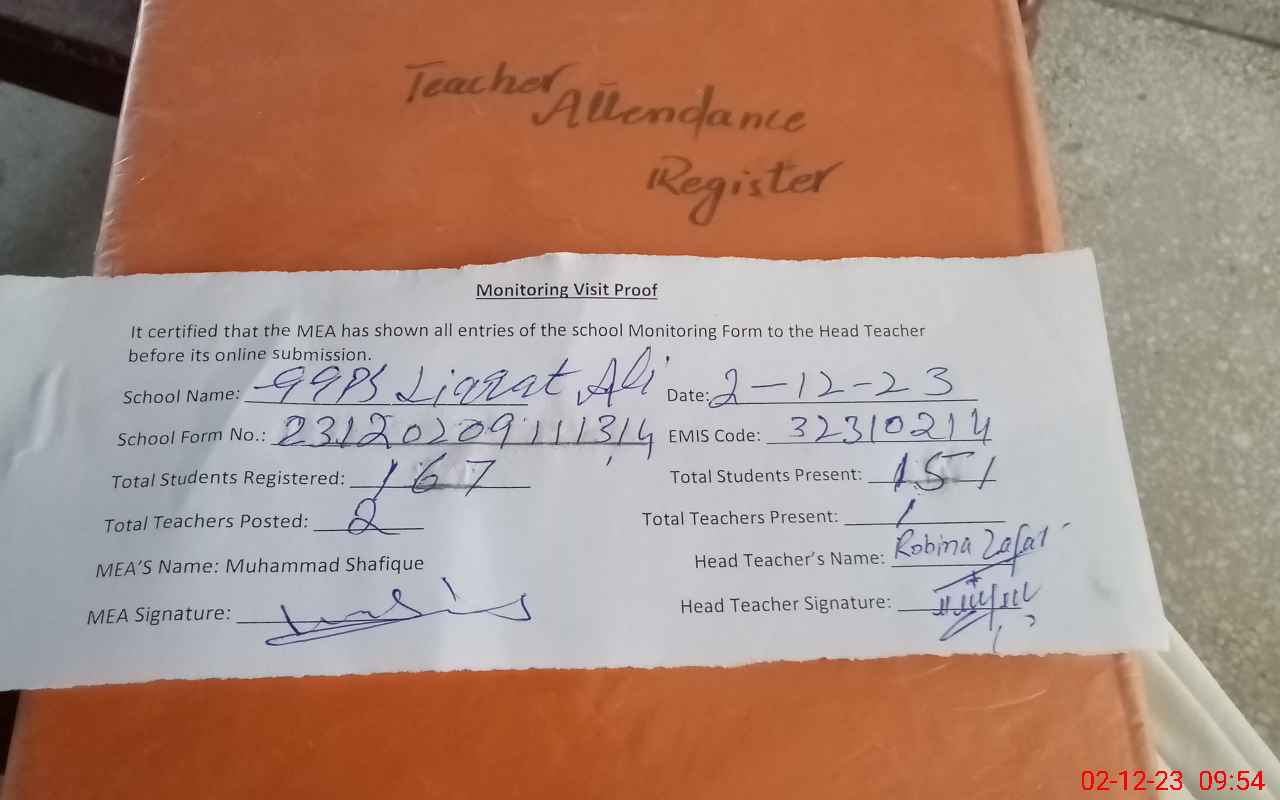 Teacher
Attendance
Register
Monitoring Visit Proof
It certified that the MEA has shown all entries of the school Monitoring Form to the Head Teacher
before its online submission.
School Name: GGPS Liaqat Ali Date: 2-12-23
School Form No.: 23120209111314 EMIS Code: 32310214
Total Students Registered: 167 Total Students Present: 151
Total Teachers Posted: 2 Total Teachers Present: 1
MEA'S Name: Muhammad Shafique Head Teacher's Name: Robina Zafar
MEA Signature: Head Teacher Signature:
02-12-23 09:54